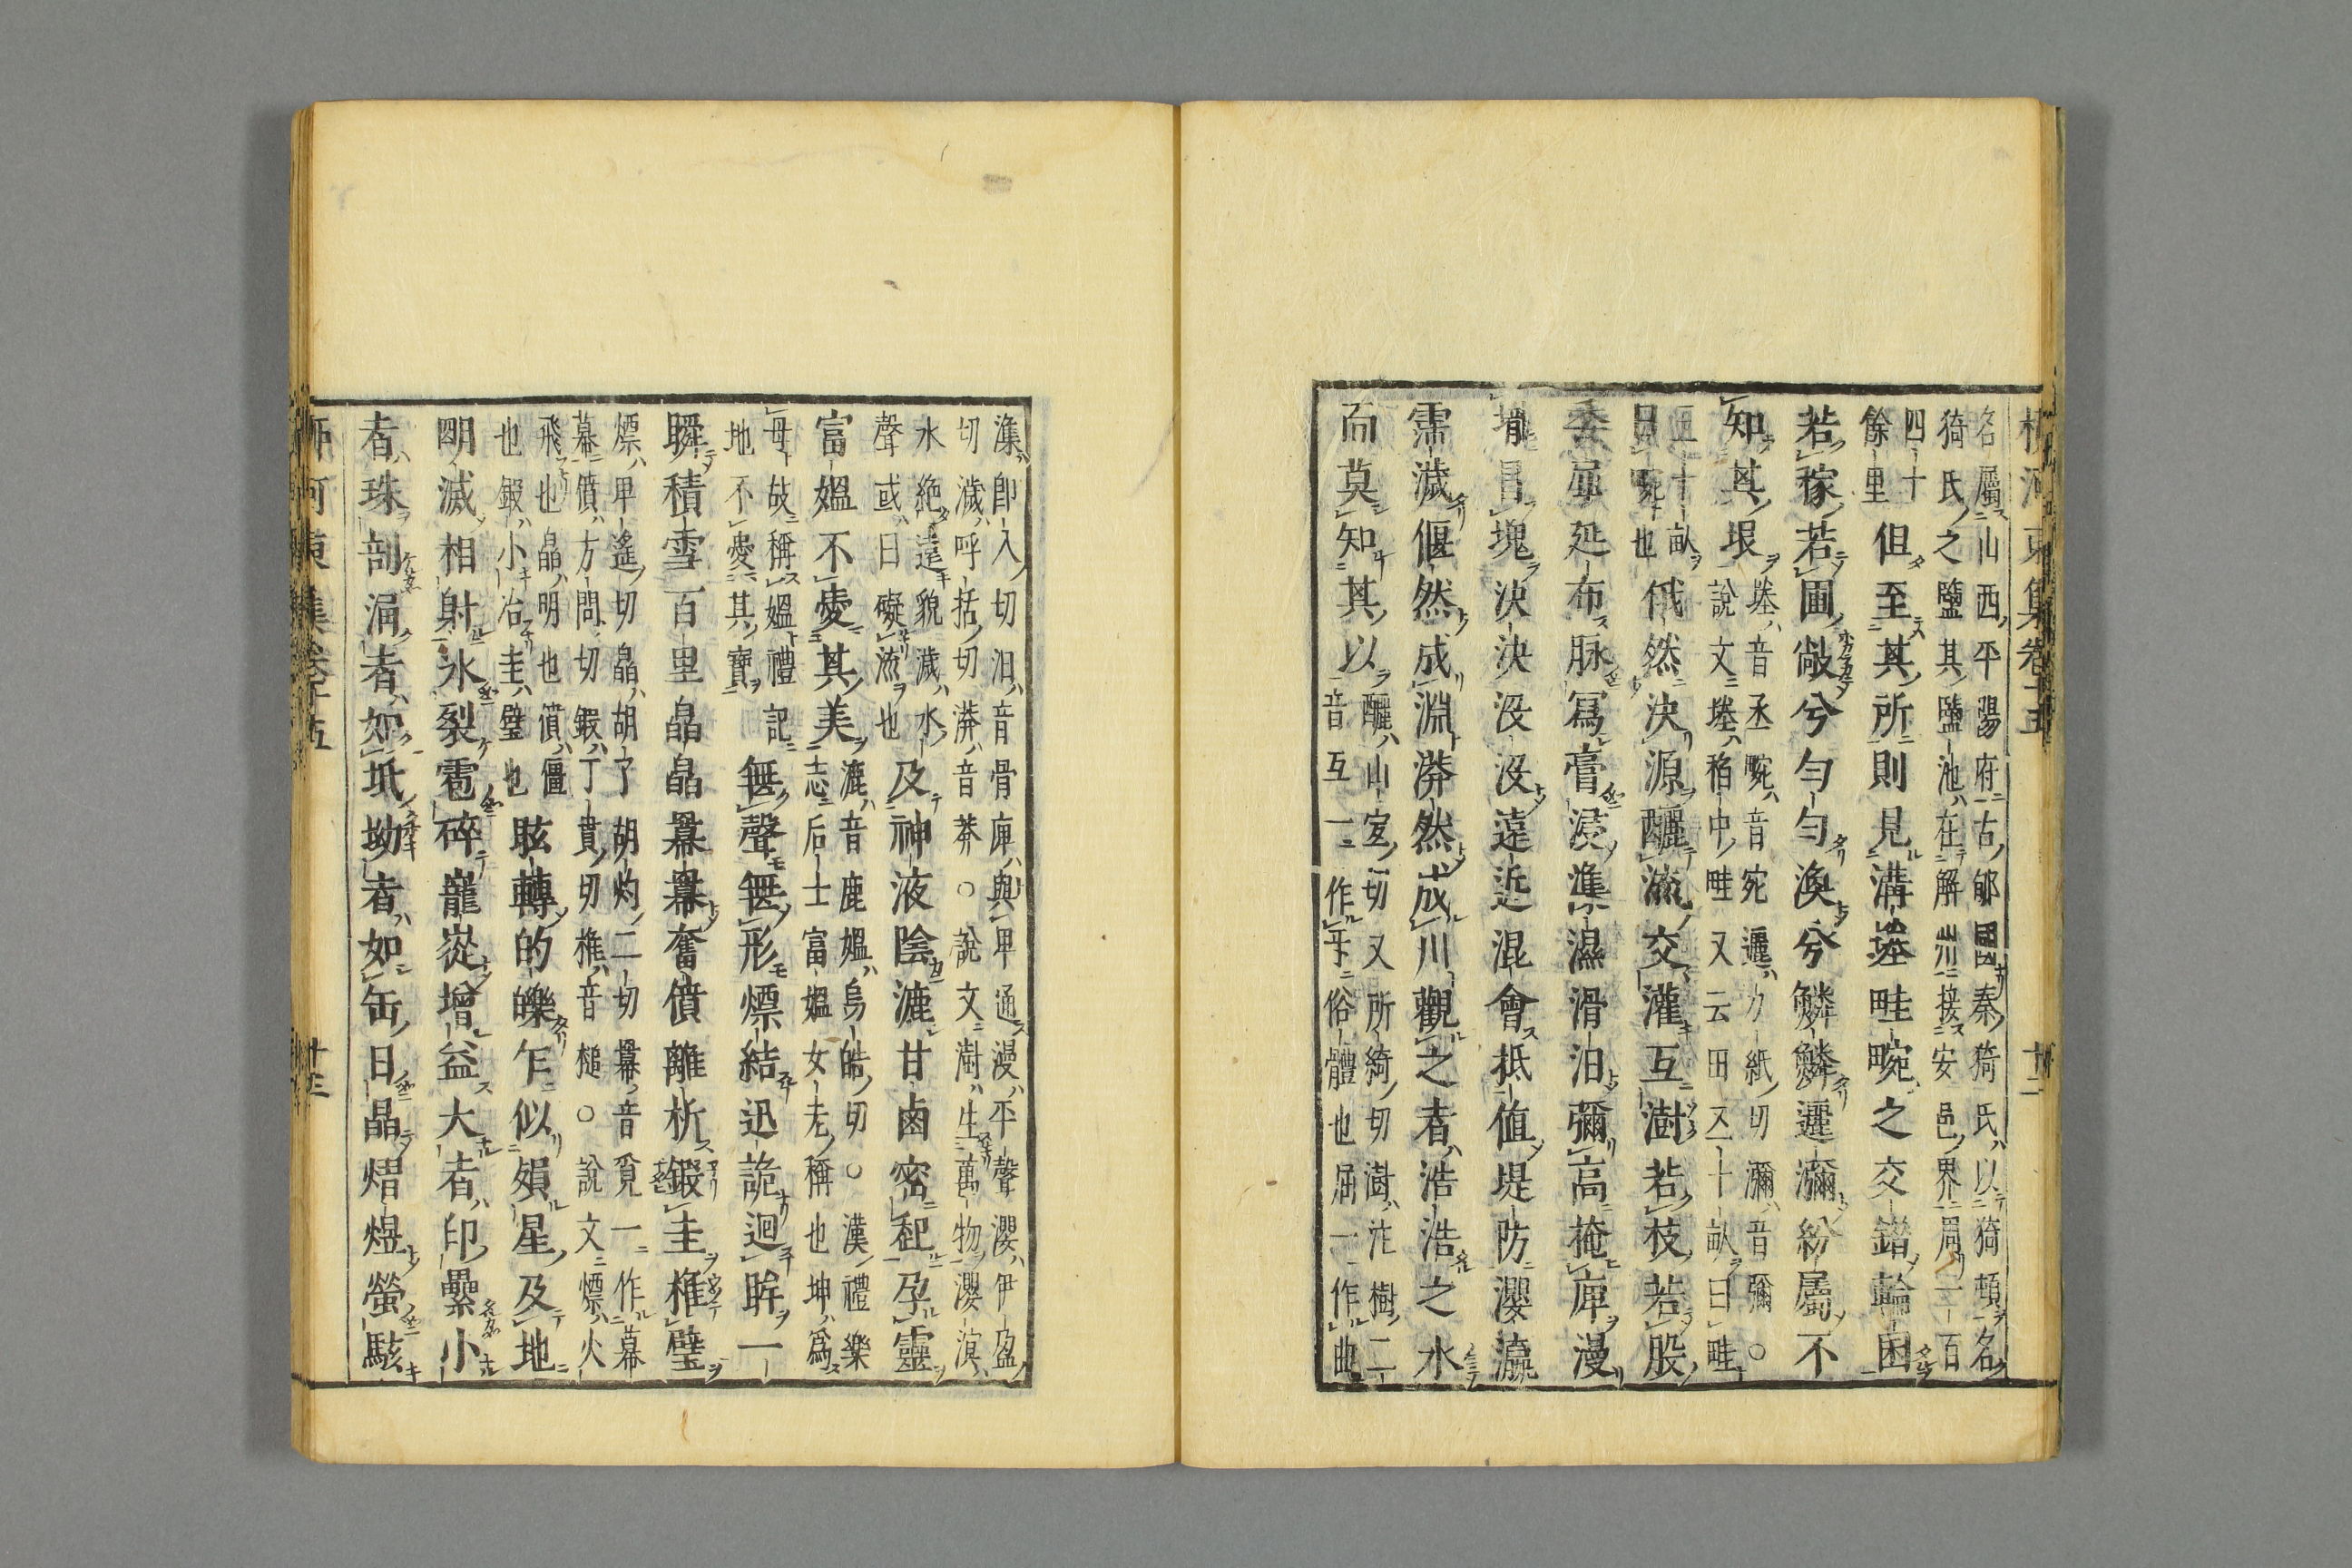 柳河東集卷十五 十二
名屬山西平陽府古郇國秦猗氏以猗頓名
猗氏之鹽其鹽池在解州接安邑界周一百
四十
餘里
但至其所則見溝塍畦畹之交錯輪囷
若稼若圃敞兮勻勻渙兮鱗鱗邐瀰紛屬不
知其垠
塍音丞畹音宛邐力紙切瀰音彌○
說文塍稻中畦又云田五十畝曰畦
五十畝
曰畹也
俄然決源釃流交灌互澍若枝若股
委屈延布脉寫膏浸潗濕滑汩彌高掩庳漫
壠冒塊決決沒沒遠近混會抵值堤防瀴瀛
霈濊偃然成淵漭然成川觀之者浩浩之水
而莫知其以
釃山宜切又所綺切澍注樹二
音互一作㸦俗體也屈一作曲
潗卽入切汩音骨庳與卑通漫平聲瀴伊盈
切濊呼括切漭音莽○說文澍生萬物瀴溟
水絶遠貌濊水
聲或曰礙流也
及神液陰漉甘鹵密起孕靈
富媼不愛其美
漉音鹿媼烏皓切○漢禮樂
志后土富媼女老稱也坤爲
母故稱媼禮記
地不愛其寶
無聲無形熛結迅詭迴眸一
瞬積雪百里皛皛羃羃奮僨離析鍛圭椎璧
熛卑遙切皛胡了胡灼二切羃音覓一作幕
幕僨方問切鍛丁貫切椎音槌○說文熛火
飛也皛明也僨僵
也鍛小冶圭璧也
眩轉的皪乍似殞星及地
明滅相射氷裂雹碎巃嵸增益大者印纍小
者珠剖涌者如坻坳者如缶日晶熠煜螢駭
柳河東集卷十五 十二